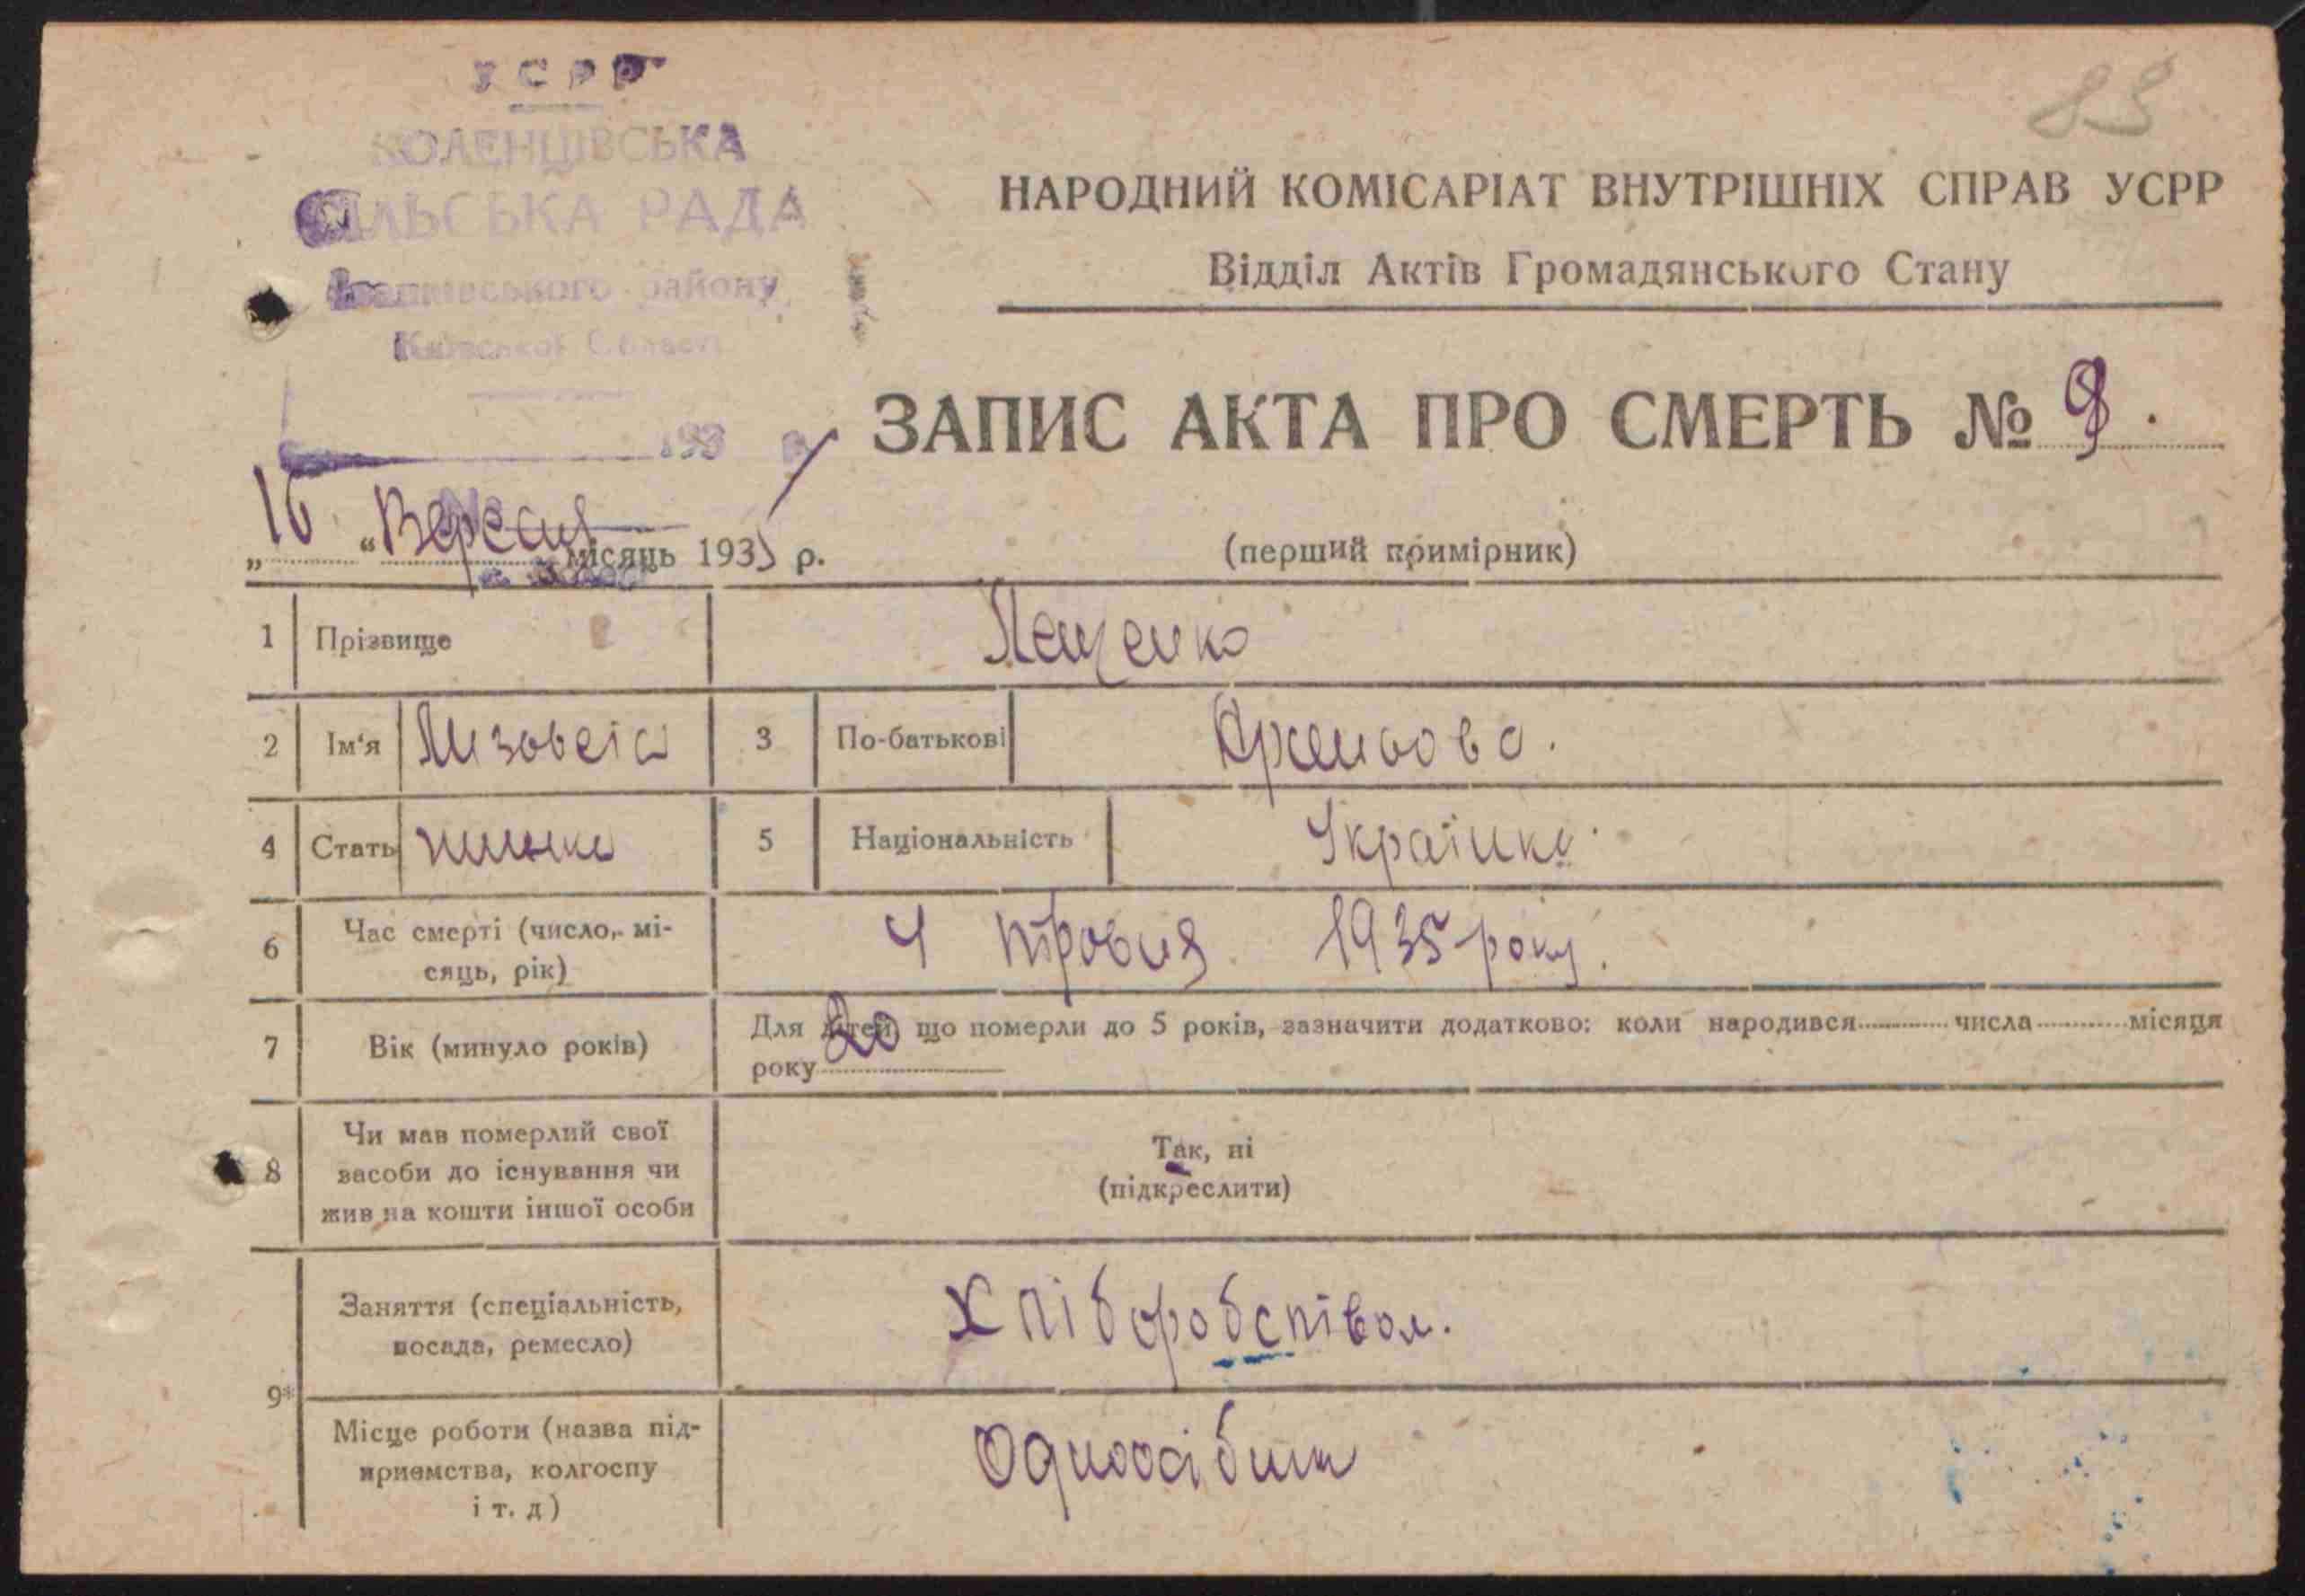 УСРР
КОЛЕНЦІВСЬКА
СІЛЬСЬКА РАДА
району
Київської Області
193 р.
НАРОДНИЙ КОМІСАРІАТ ВНУТРІШНІХ СПРАВ УСРР
Відділ Актів Громадянського Стану
ЗАПИС АКТА ПРО СМЕРТЬ №
„16“ Вересня місяць 1935 р.
(перший примірник)
1 Прізвище Лещенко
2 Ім‘я 3 По-батькові
4 Стать жінка 5 Національність Українка
6 Час смерті (число, мі-
сяць, рік) 4 травня 1935 року.
7 Вік (минуло років) 20 Для дітей, що померли до 5 років, зазначити додатково: коли народився числа місяця
року
8 Чи мав померлий свої
засоби до існування чи
жив на кошти іншої особи
Так, ні
(підкреслити)
9* Заняття (спеціальність,
посада, ремесло) Хліборобством.
Місце роботи (назва під-
приємства, колгоспу
і т. д)
Одноосібник